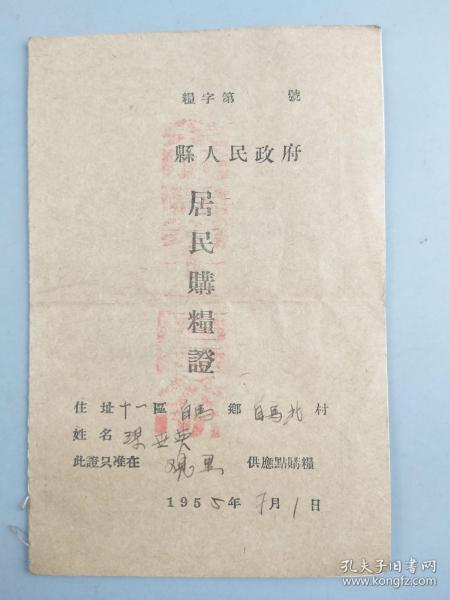 糧字第 號
縣人民政府
居民購糧證
住址十一區白馬鄉白馬北村
姓名 亞英
此證只准在 供應點購糧
1955年7月1日
孔夫子旧书网
www.kongfz.com